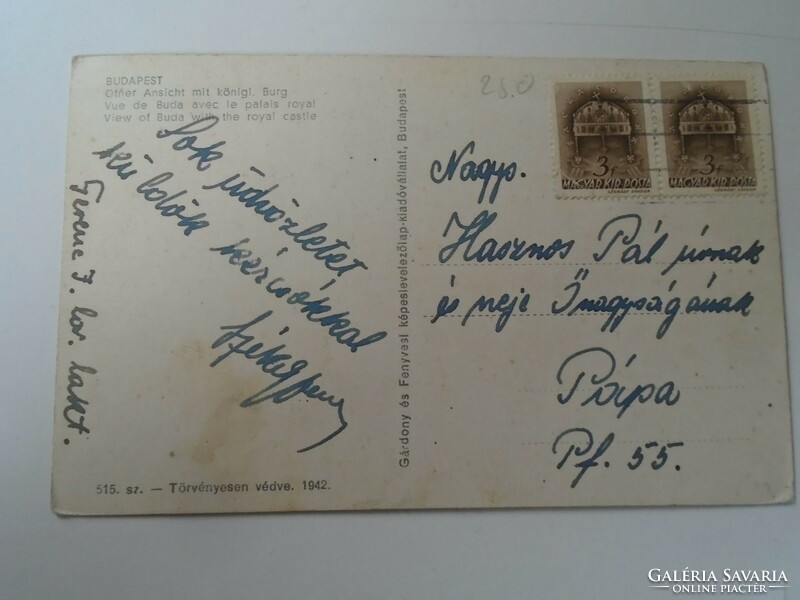 BUDAPEST
Ofner Ansicht mit königl. Burg
Vue de Buda avec le palais royal
View of Buda with the royal castle
Sok üdvözletet
küldök kézcsókkal
Ferenc J. lov. lakt.
515. sz. — Törvényesen védve. 1942.
Gárdony és Fenyvesi képeslevelezőlap-kiadóvállalat, Budapest
3f
MAGYAR KIR. POSTA
3f
MAGYAR KIR. POSTA
Nagys.
Hasznos Pál úrnak
és neje Őnagyságának
Pápa
Pf. 55.
GALÉRIA SAVARIA
ONLINE PIACTÉR